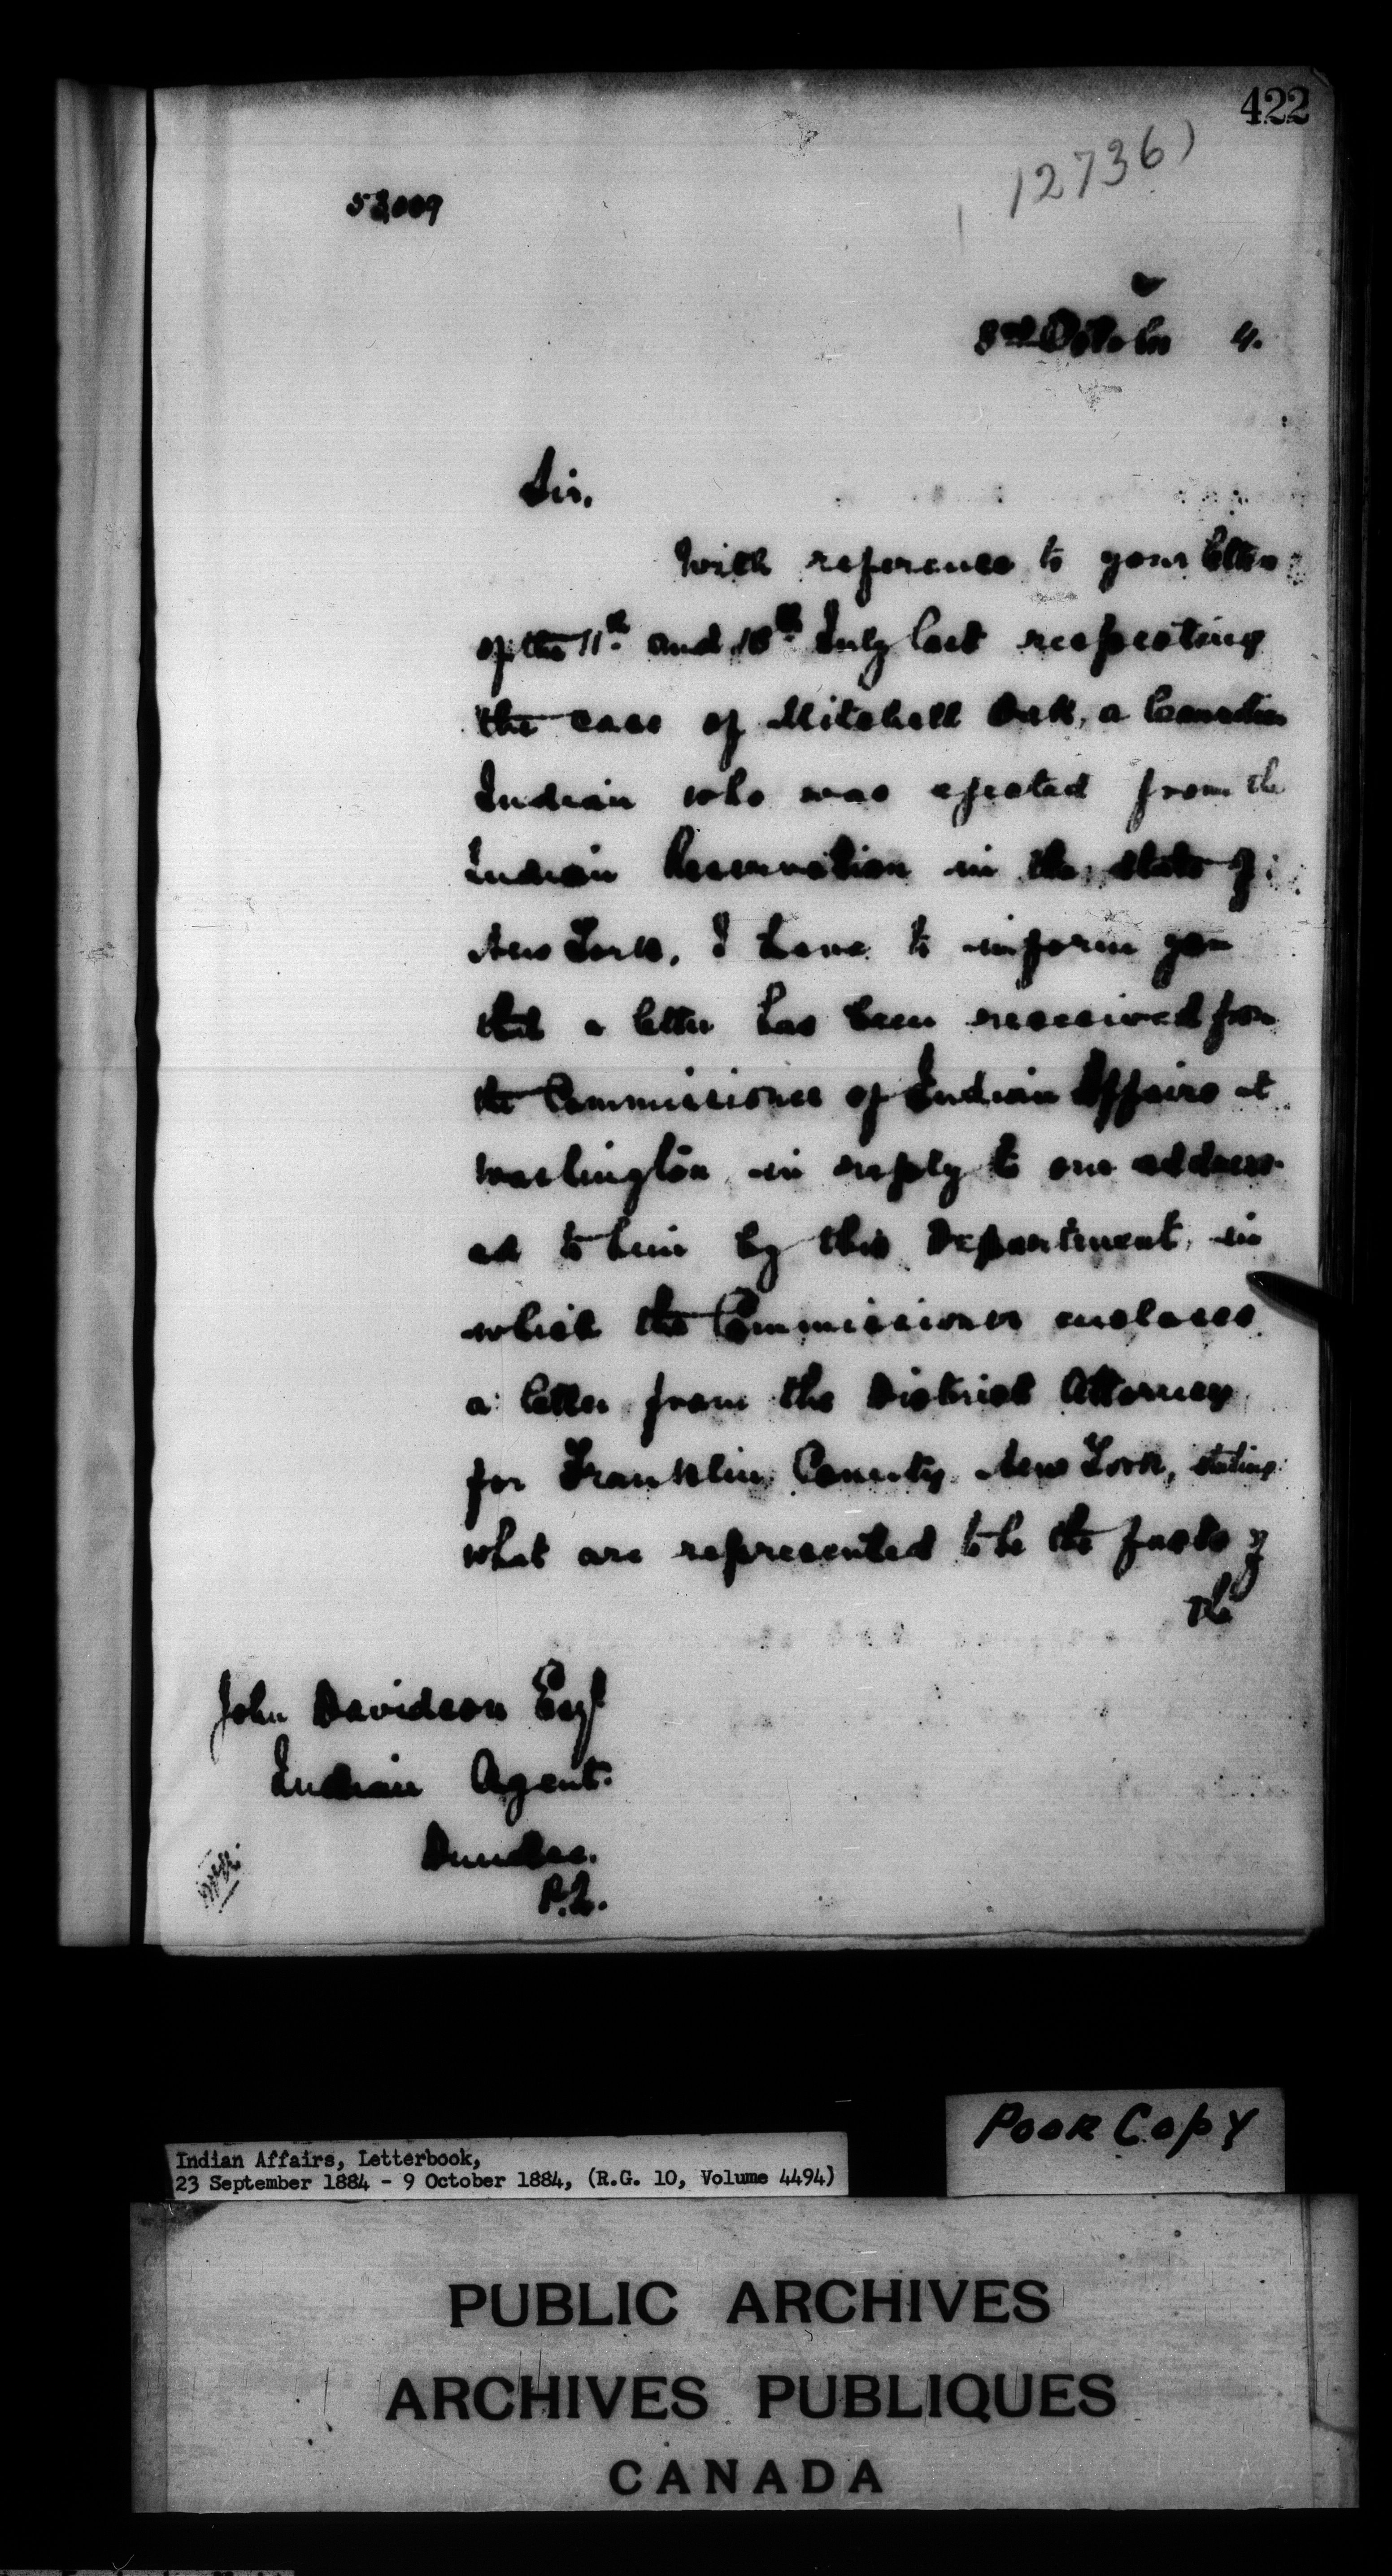 422
12736)
53,009
3rd October 4.
Sir,
With reference to your letters
of the 11th and 18th July last respecting
the case of Mitchell , a Canadian
Indian who was ejected from the
Indian Reservation in the State of
New York, I have to inform you
that a letter has been received from
the Commissioner of Indian Affairs at
Washington in reply to one address-
ed to him by this Department, in
which the Commissioner encloses
a letter from the District Attorney
for Franklin County New York, stating
what are represented to be the facts of
the
John Davidson Esqr
Indian Agent.
Dundee.
P.Q.
Poor Copy
Indian Affairs, Letterbook,
23 September 1884 - 9 October 1884, (R.G. 10, Volume 4494)
PUBLIC ARCHIVES
ARCHIVES PUBLIQUES
CANADA